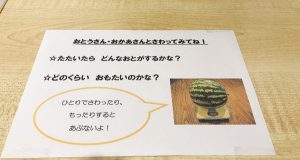 おとうさん・おかあさんとさわってみてね！
☆たたいたら どんなおとがするかな？
☆どのくらい おもたいのかな？
ひとりでさわったり、
もったりすると
あぶないよ！